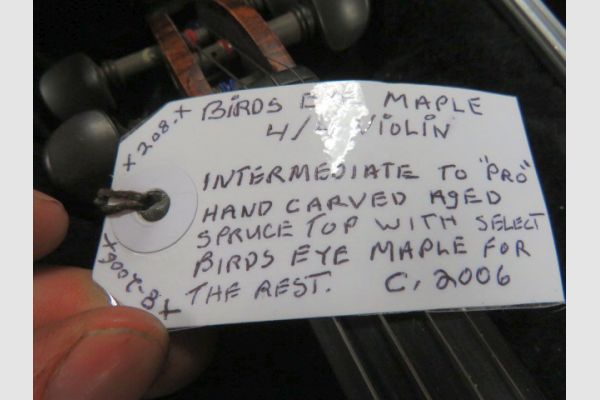 BIRDS EYE MAPLE
4/4 VIOLIN
INTERMEDIATE TO "PRO"
HAND CARVED AGED
SPRUCE TOP WITH SELECT
BIRDS EYE MAPLE FOR
THE REST. C. 2006
+ 208.+
+8-2006+